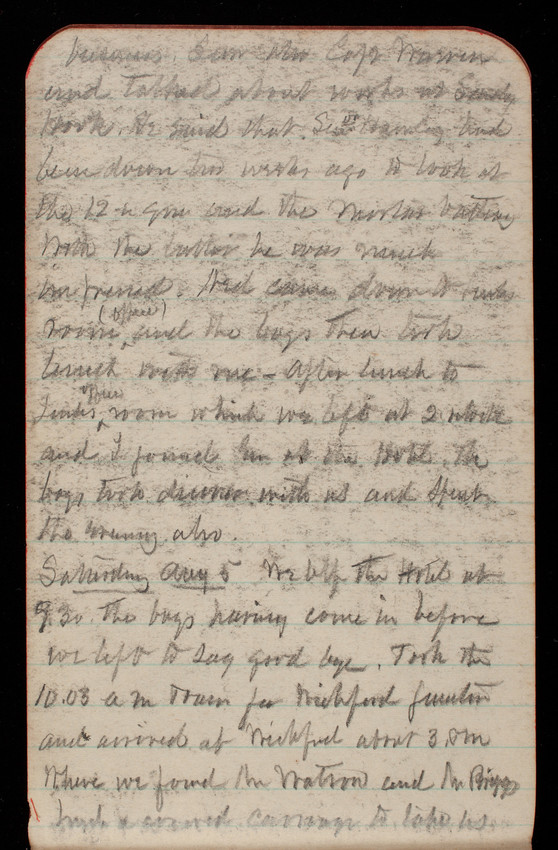 Saw also Capt Warren
and talked about works at Sandy
Hook. He said that Sen
been down two weeks ago to look at
the 12-in gun and the Mortar battery
With the latter he was much
impressed. Had come down to
room (office) and the boys then took
lunch with me - After lunch to
office room which we left at 2 oclock
and I joined Em at the Hotel. The
boys took dinner with us and spent
the evening also.
Saturday Aug 5 We left the Hotel at
9.30 the boys having come in before
we left to say good bye. Took the
10.03 a m train for Wickford Junction
and arrived at Wickford about 3 P m
Where we found Mr Watson and Mr Briggs
carriage to take us